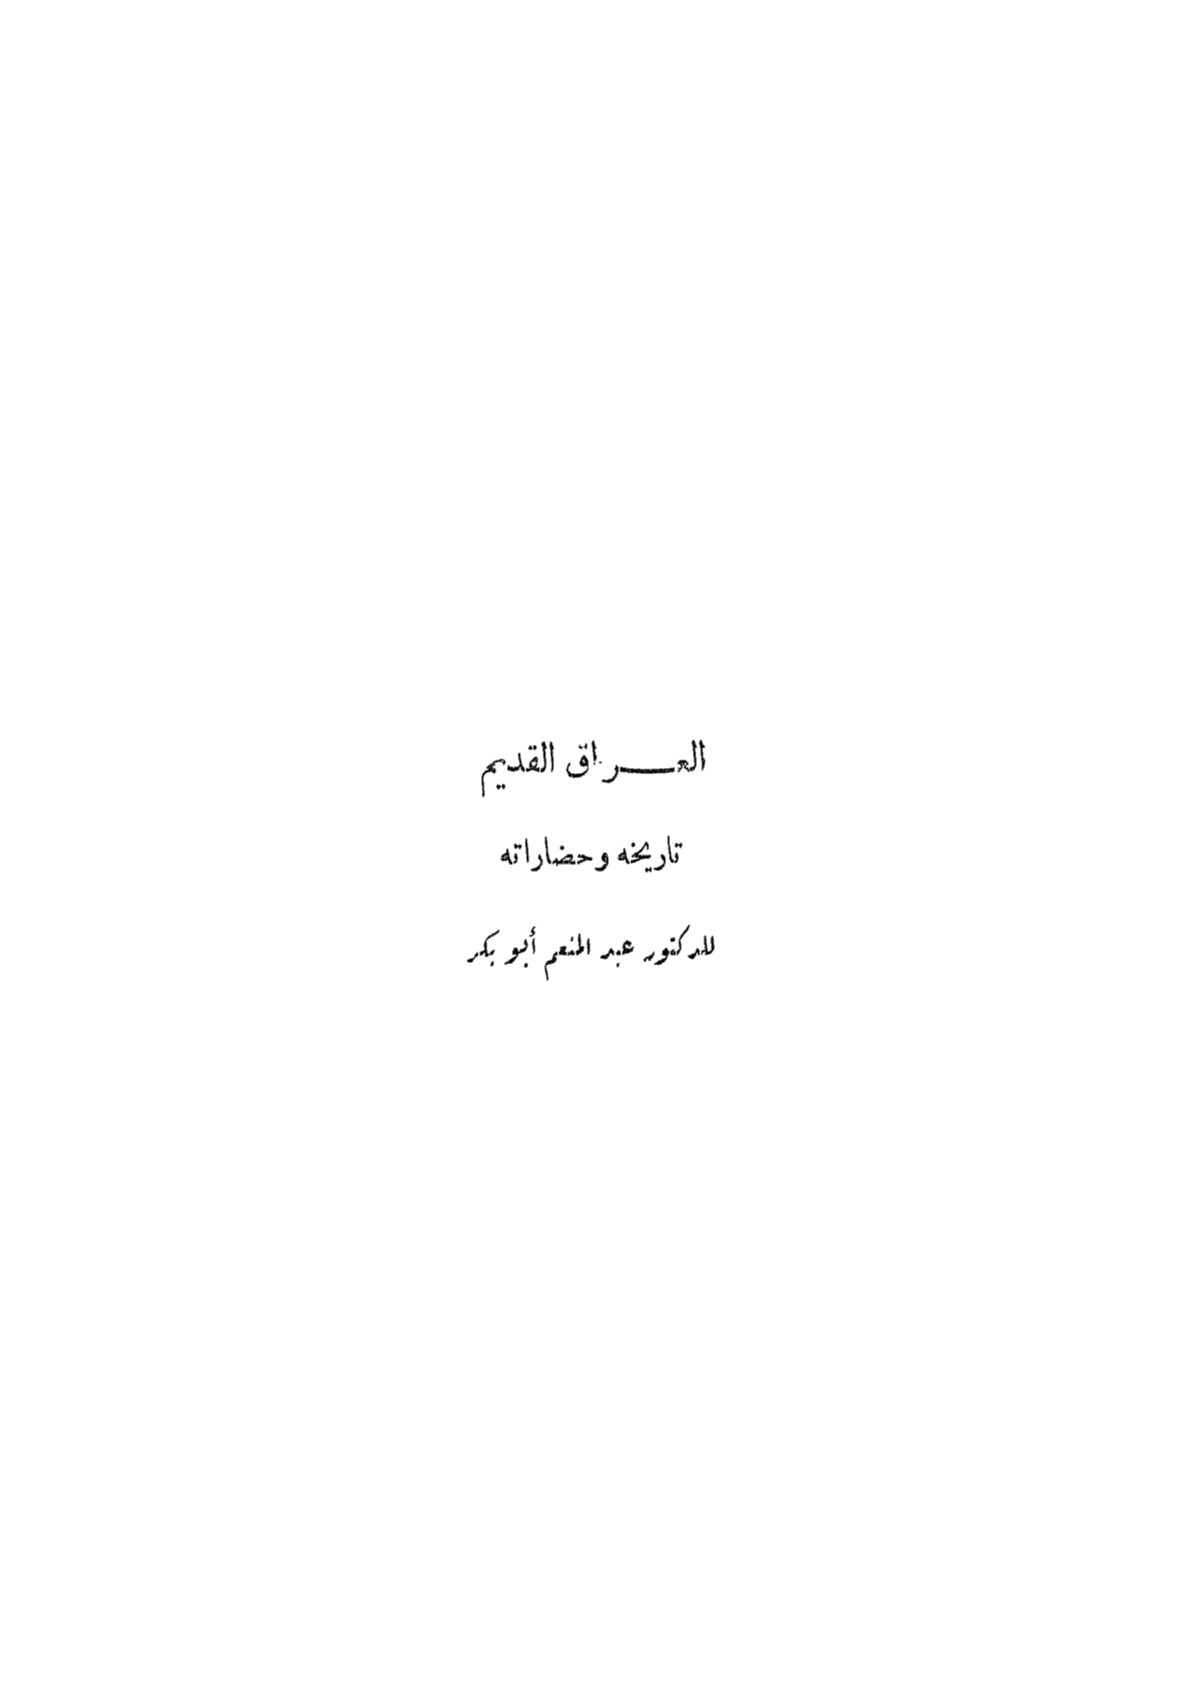 العراق القديم
تاريخه وحضاراته
للدكتور عبد المنعم أبو بكر